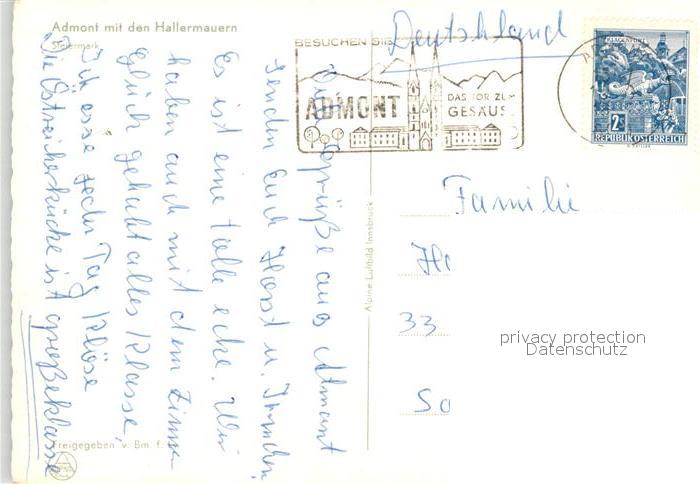 Admont mit den Hallermauern
Steiermark
BESUCHEN SIE
ADMONT
DAS TOR ZUM
GESÄUSE
Deutschland
KLAGENFURT
2S
REPUBLIK ÖSTERREICH
Familie
33
So
privacy protection
Datenschutz
Alpine Luftbild Innsbruck
Grüße aus Admont
senden Euch Horst u.
Es ist eine tolle ecke. Wir
haben auch mit dem Zimmer
Glück gehabt alles Klasse,
Ich esse jeden Tag Klöse
Die Östreicherküche ist große klasse
Freigegeben v. Bm. f.